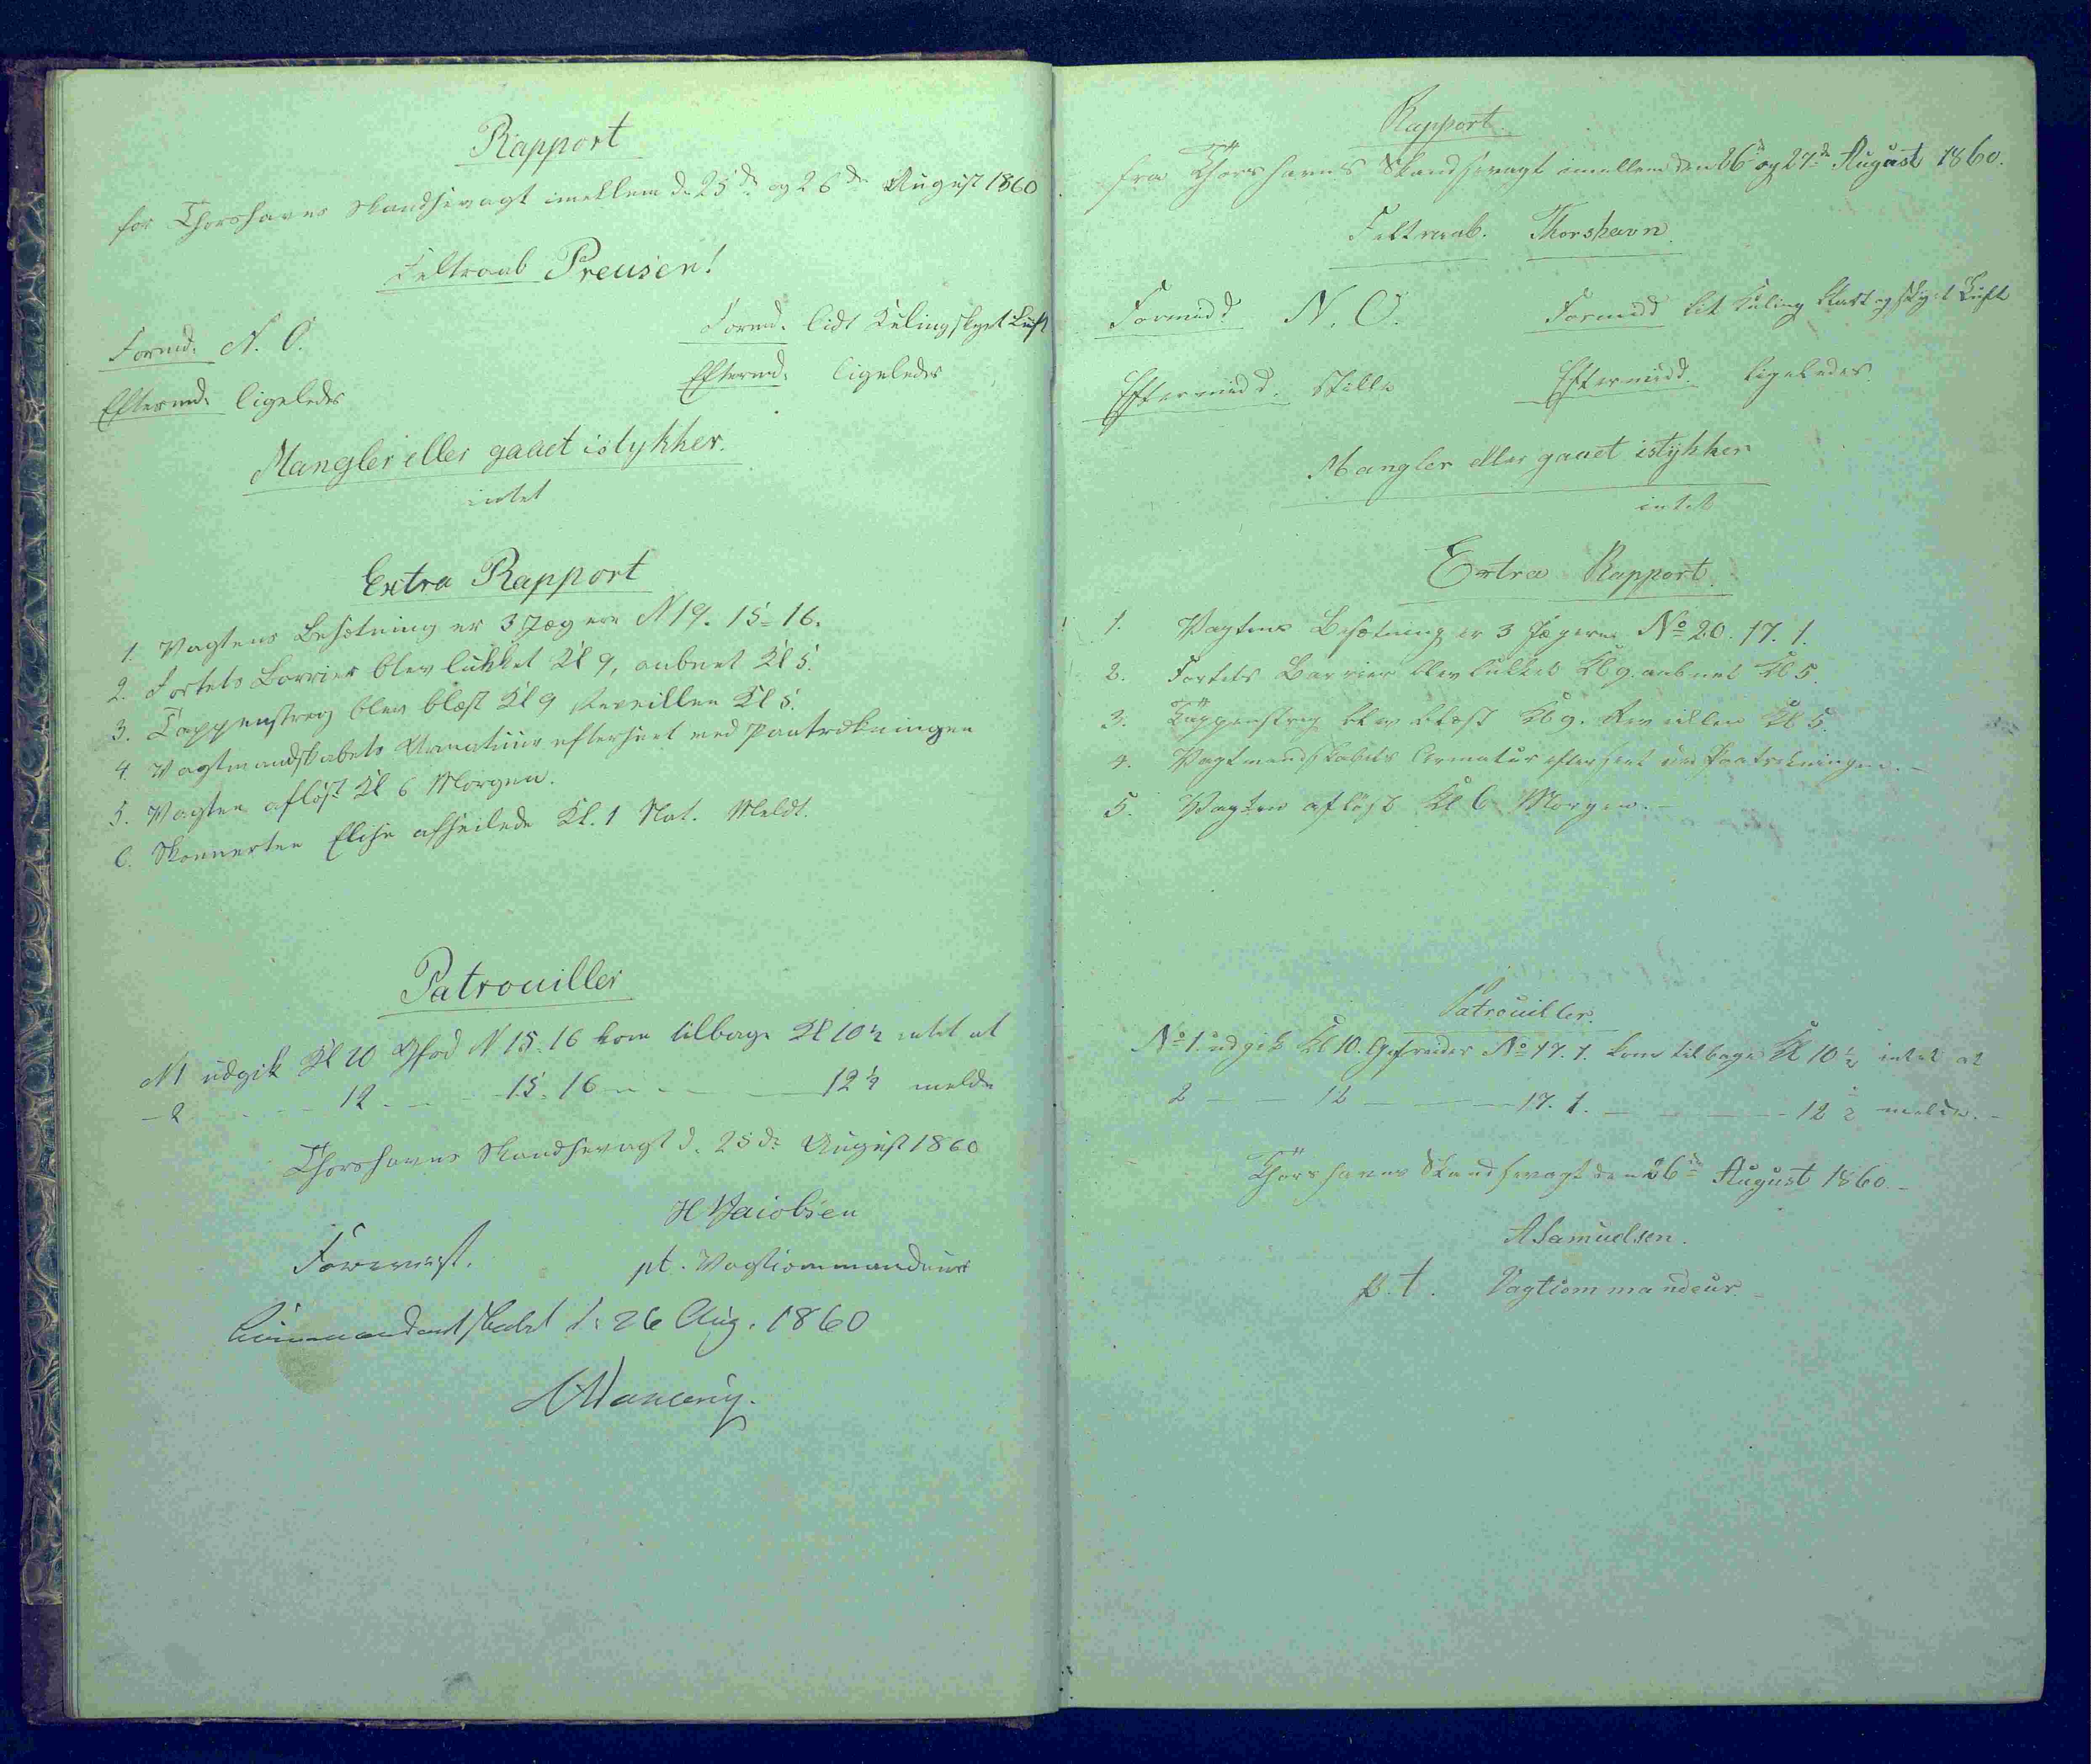 Rapport
for Thorshavns Skandsevagt imellem d. 25de og 26de August 1860
Feltraab Preusen!
Formd. N. O. Formd. lidt Kuling skyet Luft
Eftermd. ligeledes Eftermd. ligeledes
Mangler eller gaaet istykker.
intet
Extra Rapport
1. Vagtens Besætning er 3 Jægere N 19. 15. 16.
2. Fortets Barrier blev lukket Kl 9, aabnet Kl 5.
3. Tappenstreg blev blæst Kl 9 Reveillen Kl 5.
4. Vagtmandskabets Armatuur efterseet ved Paatrækningen
5. Vagten afløst Kl 6 Morgen.
6. Skonnerten Elise afseilede Kl. 1 Nat. Meldt.
Patrouiller
N1 udgik Kl 10 Gfrd N 15. 16 kom tilbage Kl 10½ intet at
- 2 - - - 12 - - - 15. 16 - - - 12½ melde
Thorshavns Skandsevagt d. 25de August 1860
H Jaiobsen
Foreviist. pt. Vagtiommandeur
Commandantskabet d. 26 Aug. 1860
Rapport.
fra Thorshavns Skandsevagt imellem den 26de og 27de August 1860.
Feltraab. Thorshavn.
Formidd. N. O. Formidd lit Kuling klart og skyet Luft
Eftermidd. Stille Eftermidd. ligeledes.
Mangler eller gaaet istykker
intet
Extra Rapport.
1. Vagtens Besætning er 3 Jægere No 20. 17. 1.
2. Fortets Barrier blev lukket Kl 9. aabnet Kl 5.
3. Tappenstreg blev blæst Kl 9. Reveillen Kl 5.
4. Vagtmandskabets Armatur efterseet ved Paatrækningen. -
5. Vagten afløst Kl 6 Morgen. -
Patrouiller.
No 1. udgik Kl 10. Gefreider No 17. 1. kom tilbage Kl 10½ intet at
2 - - 12 - - - 17. 1. - - - - 12½ melde. -
Thorshavns Skandsevagt den 26de August 1860 -
A Samuelsen.
p. t. Vagtiommandeur.